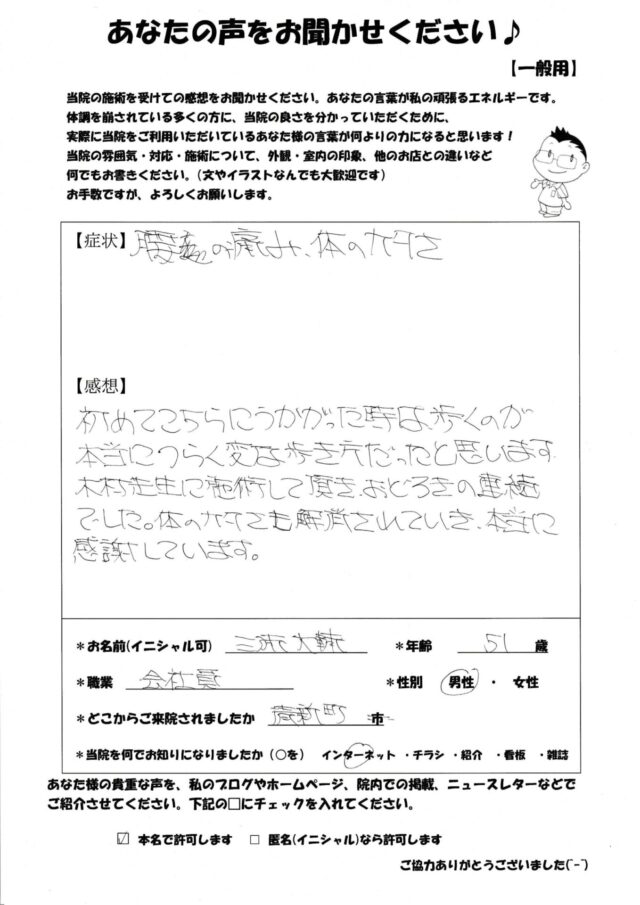 あなたの声をお聞かせください♪
【一般用】
当院の施術を受けての感想をお聞かせください。あなたの言葉が私の頑張るエネルギーです。
体調を崩されている多くの方に、当院の良さを分かっていただくために、
実際に当院をご利用いただいているあなた様の言葉が何よりの力になると思います！
当院の雰囲気・対応・施術について、外観・室内の印象、他のお店との違いなど
何でもお書きください。（文やイラストなんでも大歓迎です）
お手数ですが、よろしくお願いします。
【症状】腰の痛み、体のカタさ
【感想】
初めてこちらにうかがった時は、歩くのが
本当につらく変な歩き方だったと思います
木村先生に施術して頂き、おどろきの連続
でした。体のカタさも解消されていき、本当に
感謝しています。
＊お名前(イニシャル可) 三 大輔 ＊年齢 51 歳
＊職業 会社員 ＊性別 男性 ・ 女性
＊どこからご来院されましたか 町 市
＊当院を何でお知りになりましたか（○を） インターネット ・チラシ ・紹介 ・看板 ・雑誌
あなた様の貴重な声を、私のブログやホームページ、院内での掲載、ニュースレターなどで
ご紹介させてください。下記の□にチェックを入れてください。
☑ 本名で許可します □ 匿名(イニシャル)なら許可します
ご協力ありがとうございました(^-^)